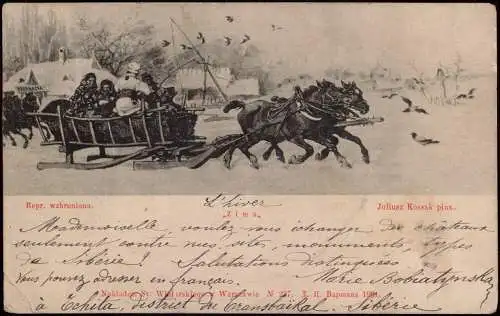 Repr. wzbroniona.
L'hiver
„Zima“
Juliusz Kossak pinx.
Mademoiselle, voulez vous échanger des châteaux
seulement contre vues, sites, monuments, types
de Sibérie? Salutations distinguées
Vous pouvez adresser en français. Marie Bobiatynska
Nakładem St. Winiarskiego w Warszawie № 227. Z. H. Варшава
à Tchita, district du Transbaïkal. Sibérie